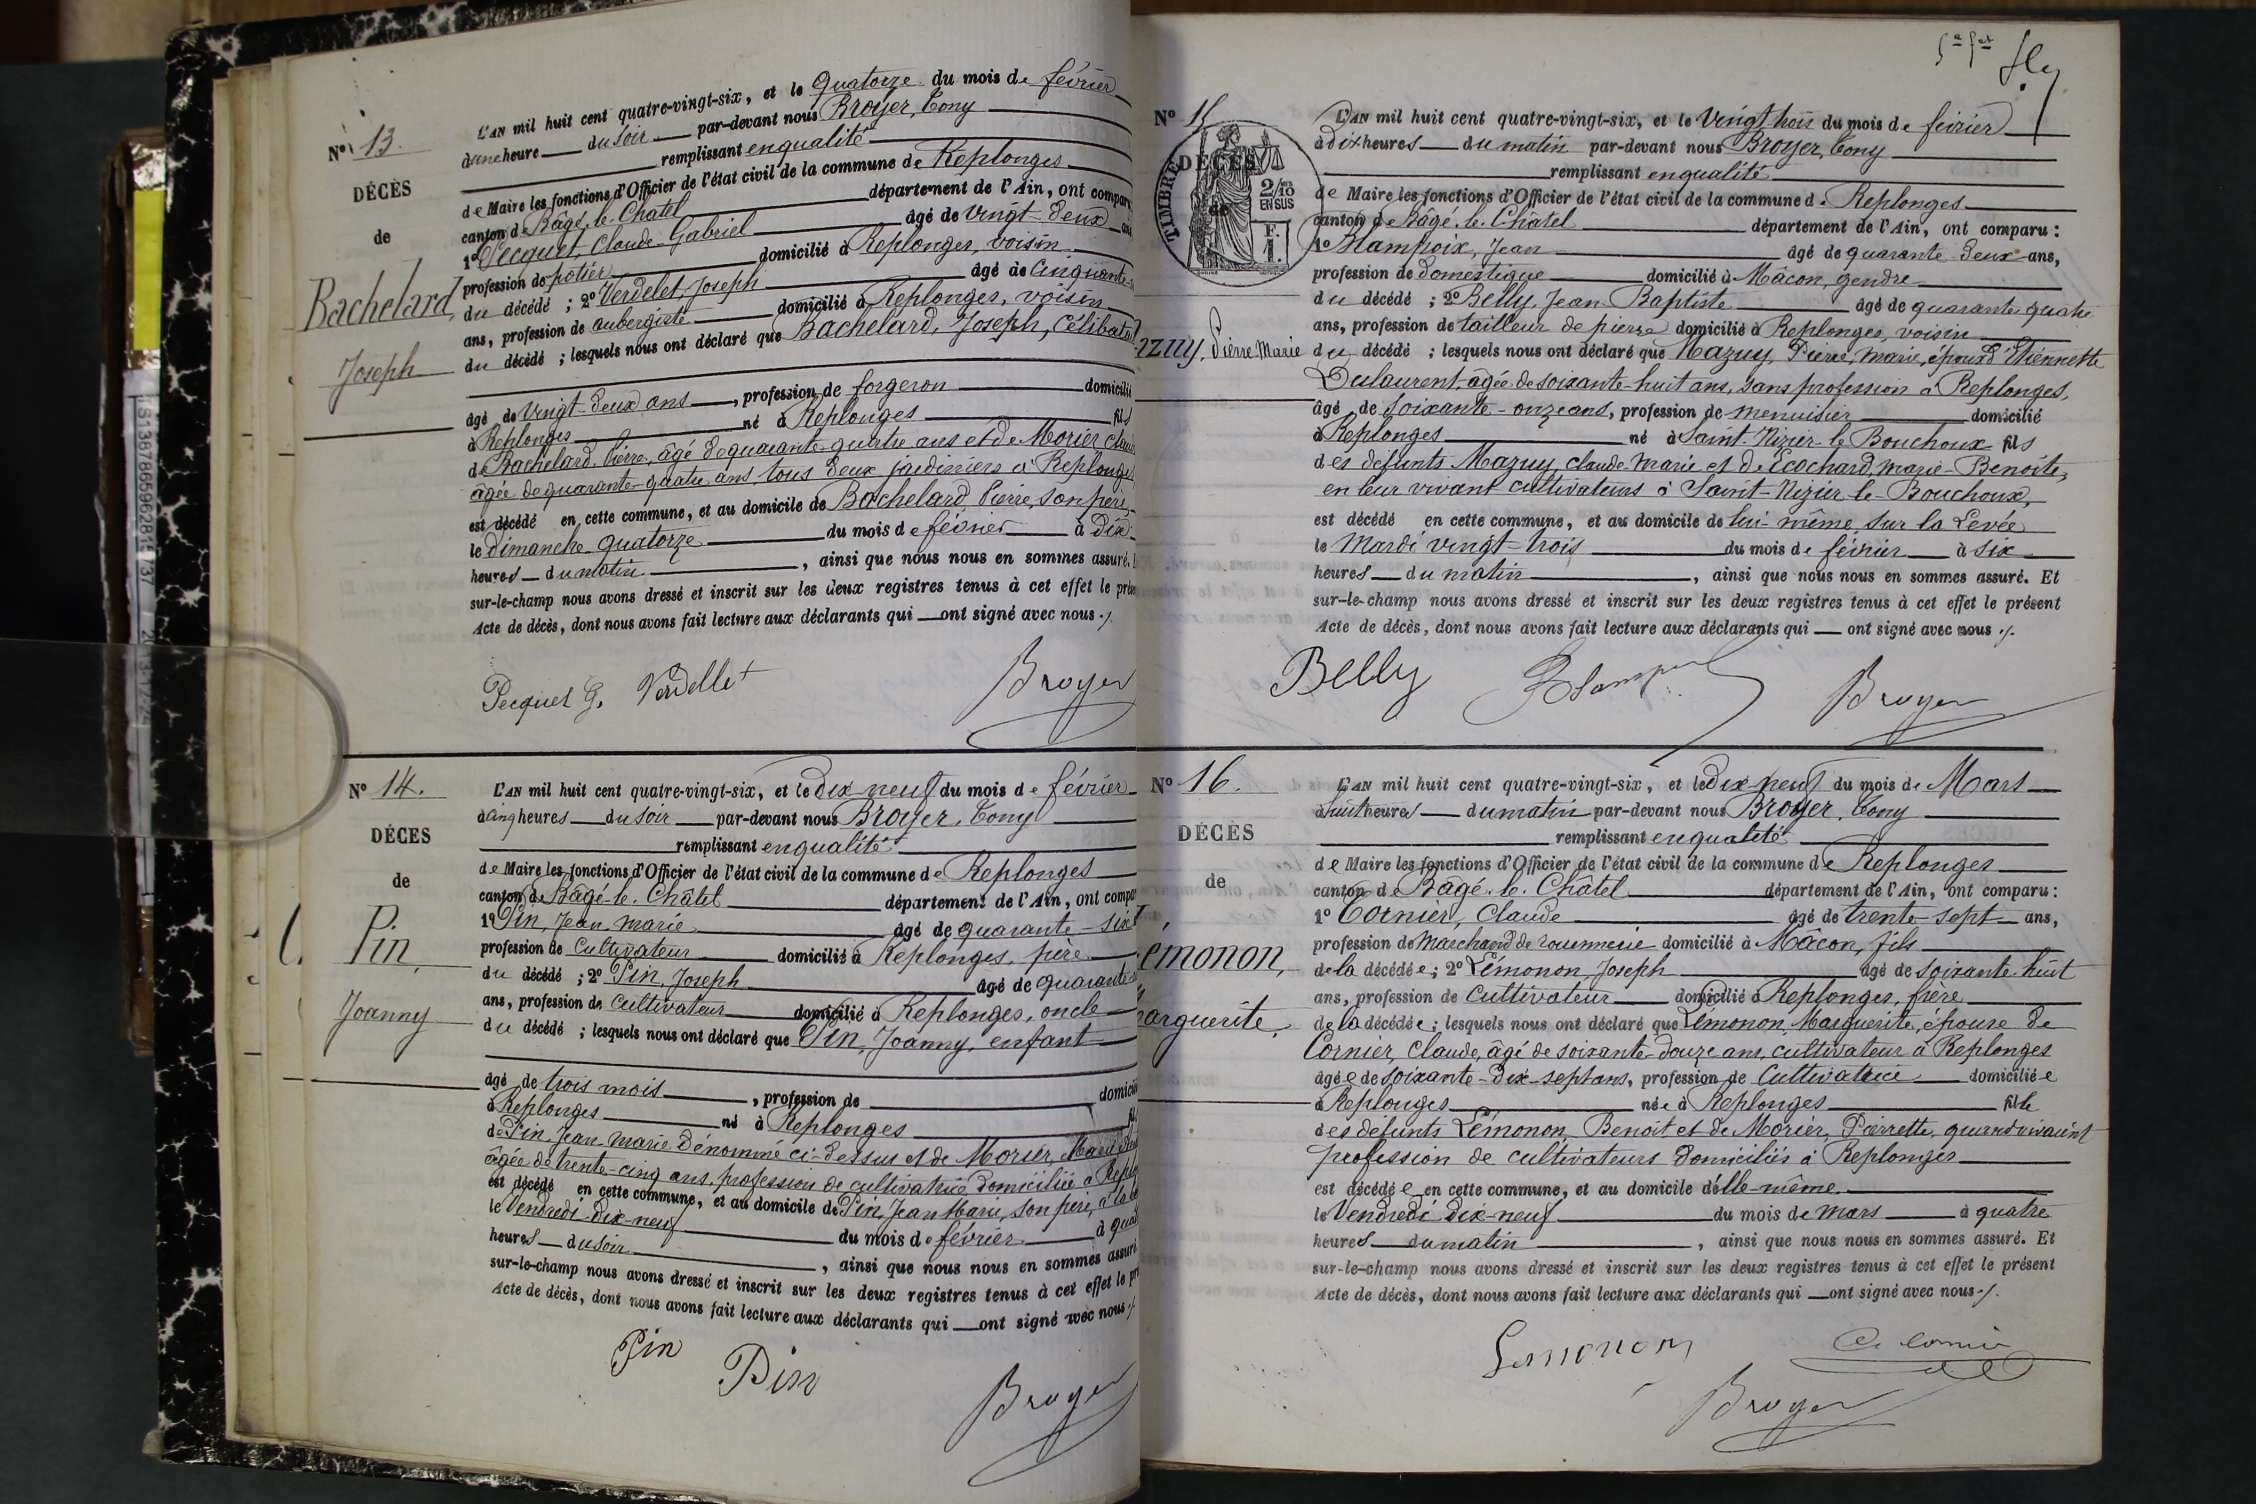 N° 13.
DÉCÈS
de
Bachelard,
Joseph
L'AN mil huit cent quatre-vingt-six, et le quatorze du mois de février
à une heure du soir par-devant nous Broyer, Tony
remplissant en qualité
de Maire les fonctions d'Officier de l'état civil de la commune de Replonges
canton de Bâgé-le-Châtel département de l'Ain, ont compar
1° Pecquet, Claude-Gabriel âgé de vingt-deux ans
profession de potier domicilié à Replonges, voisin
du décédé ; 2° Verdelet, Joseph âgé de cinquante-
ans, profession de aubergiste domicilié à Replonges, voisin
du décédé ; lesquels nous ont déclaré que Bachelard, Joseph, célibat
âgé de vingt-deux ans, profession de forgeron domicilié
à Replonges né à Replonges fils
de Bachelard, Pierre, âgé de quarante-quatre ans et de Morier
âgée de quarante-quatre ans, tous deux jardiniers à Replonges
est décédé en cette commune, et au domicile de Bachelard, Pierre, son père,
le dimanche quatorze du mois de février à dix
heures du matin, ainsi que nous nous en sommes assuré.
sur-le-champ nous avons dressé et inscrit sur les deux registres tenus à cet effet le prés
Acte de décès, dont nous avons fait lecture aux déclarants qui ont signé avec nous ./.
Pecquet G. Verdellet Broyer
N° 14.
DÉCES
de
Pin,
Joanny
L'AN mil huit cent quatre-vingt-six, et le dix-neuf du mois de février
à cinq heures du soir par-devant nous Broyer, Tony
remplissant en qualité
de Maire les fonctions d'Officier de l'état civil de la commune de Replonges
canton de Bâgé-le-Châtel département de l'Ain, ont compa
1° Pin, Jean marie âgé de quarante-six
profession de cultivateur domicilié à Replonges, père
du décédé ; 2° Pin, Joseph âgé de quarante
ans, profession de cultivateur domicilié à Replonges, oncle
du décédé ; lesquels nous ont déclaré que Pin, Joanny, enfant
âgé de trois mois, profession de domicilié
à Replonges né à Replonges fils
de Pin Jean-marie dénommé ci-dessus et de Morier, Marie
âgée de trente-cinq ans, profession de cultivatrice domiciliée à Replo
est décédé en cette commune, et au domicile de Pin, Jean Marie, son père, à la
le Vendredi dix-neuf du mois de février à qua
heures du soir, ainsi que nous nous en sommes assuré
sur-le-champ nous avons dressé et inscrit sur les deux registres tenus à cet effet le pr
Acte de décès, dont nous avons fait lecture aux déclarants qui ont signé avec nous ./.
Pin Pin Broyer
N° 15
TIMBRE
2/10 EN SUS
F. 1.
DÉCÈS
de
azuy, Pierre Marie
L'AN mil huit cent quatre-vingt-six, et le vingt trois du mois de février
à dix heures du matin par-devant nous Broyer, Tony
remplissant en qualité
de Maire les fonctions d'Officier de l'état civil de la commune de Replonges
canton de Bâgé-le-Châtel département de l'Ain, ont comparu :
1° Blampoix, Jean âgé de quarante-deux ans,
profession de domestique domicilié à Mâcon, gendre
du décédé ; 2° Belly, Jean-Baptiste âgé de quarante-quatre
ans, profession de tailleur de pierre domicilié à Replonges, voisin
du décédé ; lesquels nous ont déclaré que Mazuy, Pierre, marie, époux d'Etiennette
Dulaurent, âgée de soixante-huit ans, sans profession à Replonges,
âgé de soixante-onze ans, profession de menuisier domicilié
à Replonges né à Saint-Nizier-le-Bouchoux fils
des défunts Mazuy, Claude-Marie et de Ecochard, Marie-Benoite,
en leur vivant cultivateurs à Saint-Nizier-le-Bouchoux,
est décédé en cette commune, et au domicile de lui-même, sur la Levée
le mardi vingt-trois du mois de février à six
heures du matin, ainsi que nous nous en sommes assuré. Et
sur-le-champ nous avons dressé et inscrit sur les deux registres tenus à cet effet le présent
Acte de décès, dont nous avons fait lecture aux déclarants qui ont signé avec nous ./.
Belly Broyer
N° 16.
DÉCÈS
de
émonon,
arguerite,
L'AN mil huit cent quatre-vingt-six, et le dix-neuf du mois de Mars
à huit heures du matin par-devant nous Broyer, Tony
remplissant en qualité
de Maire les fonctions d'Officier de l'état civil de la commune de Replonges
canton de Bâgé-le-Châtel département de l'Ain, ont comparu :
1° Cornier, Claude âgé de trente-sept ans,
profession de marchand de rouennerie domicilié à Mâcon, fils
de la décédée ; 2° Lémonon Joseph âgé de soixante-huit
ans, profession de cultivateur domicilié à Replonges, frère
de la décédée ; lesquels nous ont déclaré que Lémonon, Marguerite, épouse de
Cornier, Claude, âgé de soixante-douze ans, cultivateur à Replonges
âgée de soixante-dix-sept ans, profession de cultivatrice domiciliée
à Replonges née à Replonges fille
des défunts Lémonon, Benoît et de Morier, Pierrette, quand vivaient
profession de cultivateurs domiciliés à Replonges
est décédée en cette commune, et au domicile d'elle-même.
le Vendredi dix-neuf du mois de mars à quatre
heures du matin, ainsi que nous nous en sommes assuré. Et
sur-le-champ nous avons dressé et inscrit sur les deux registres tenus à cet effet le présent
Acte de décès, dont nous avons fait lecture aux déclarants qui ont signé avec nous ./.
Lemonon C. Cornier
Broyer